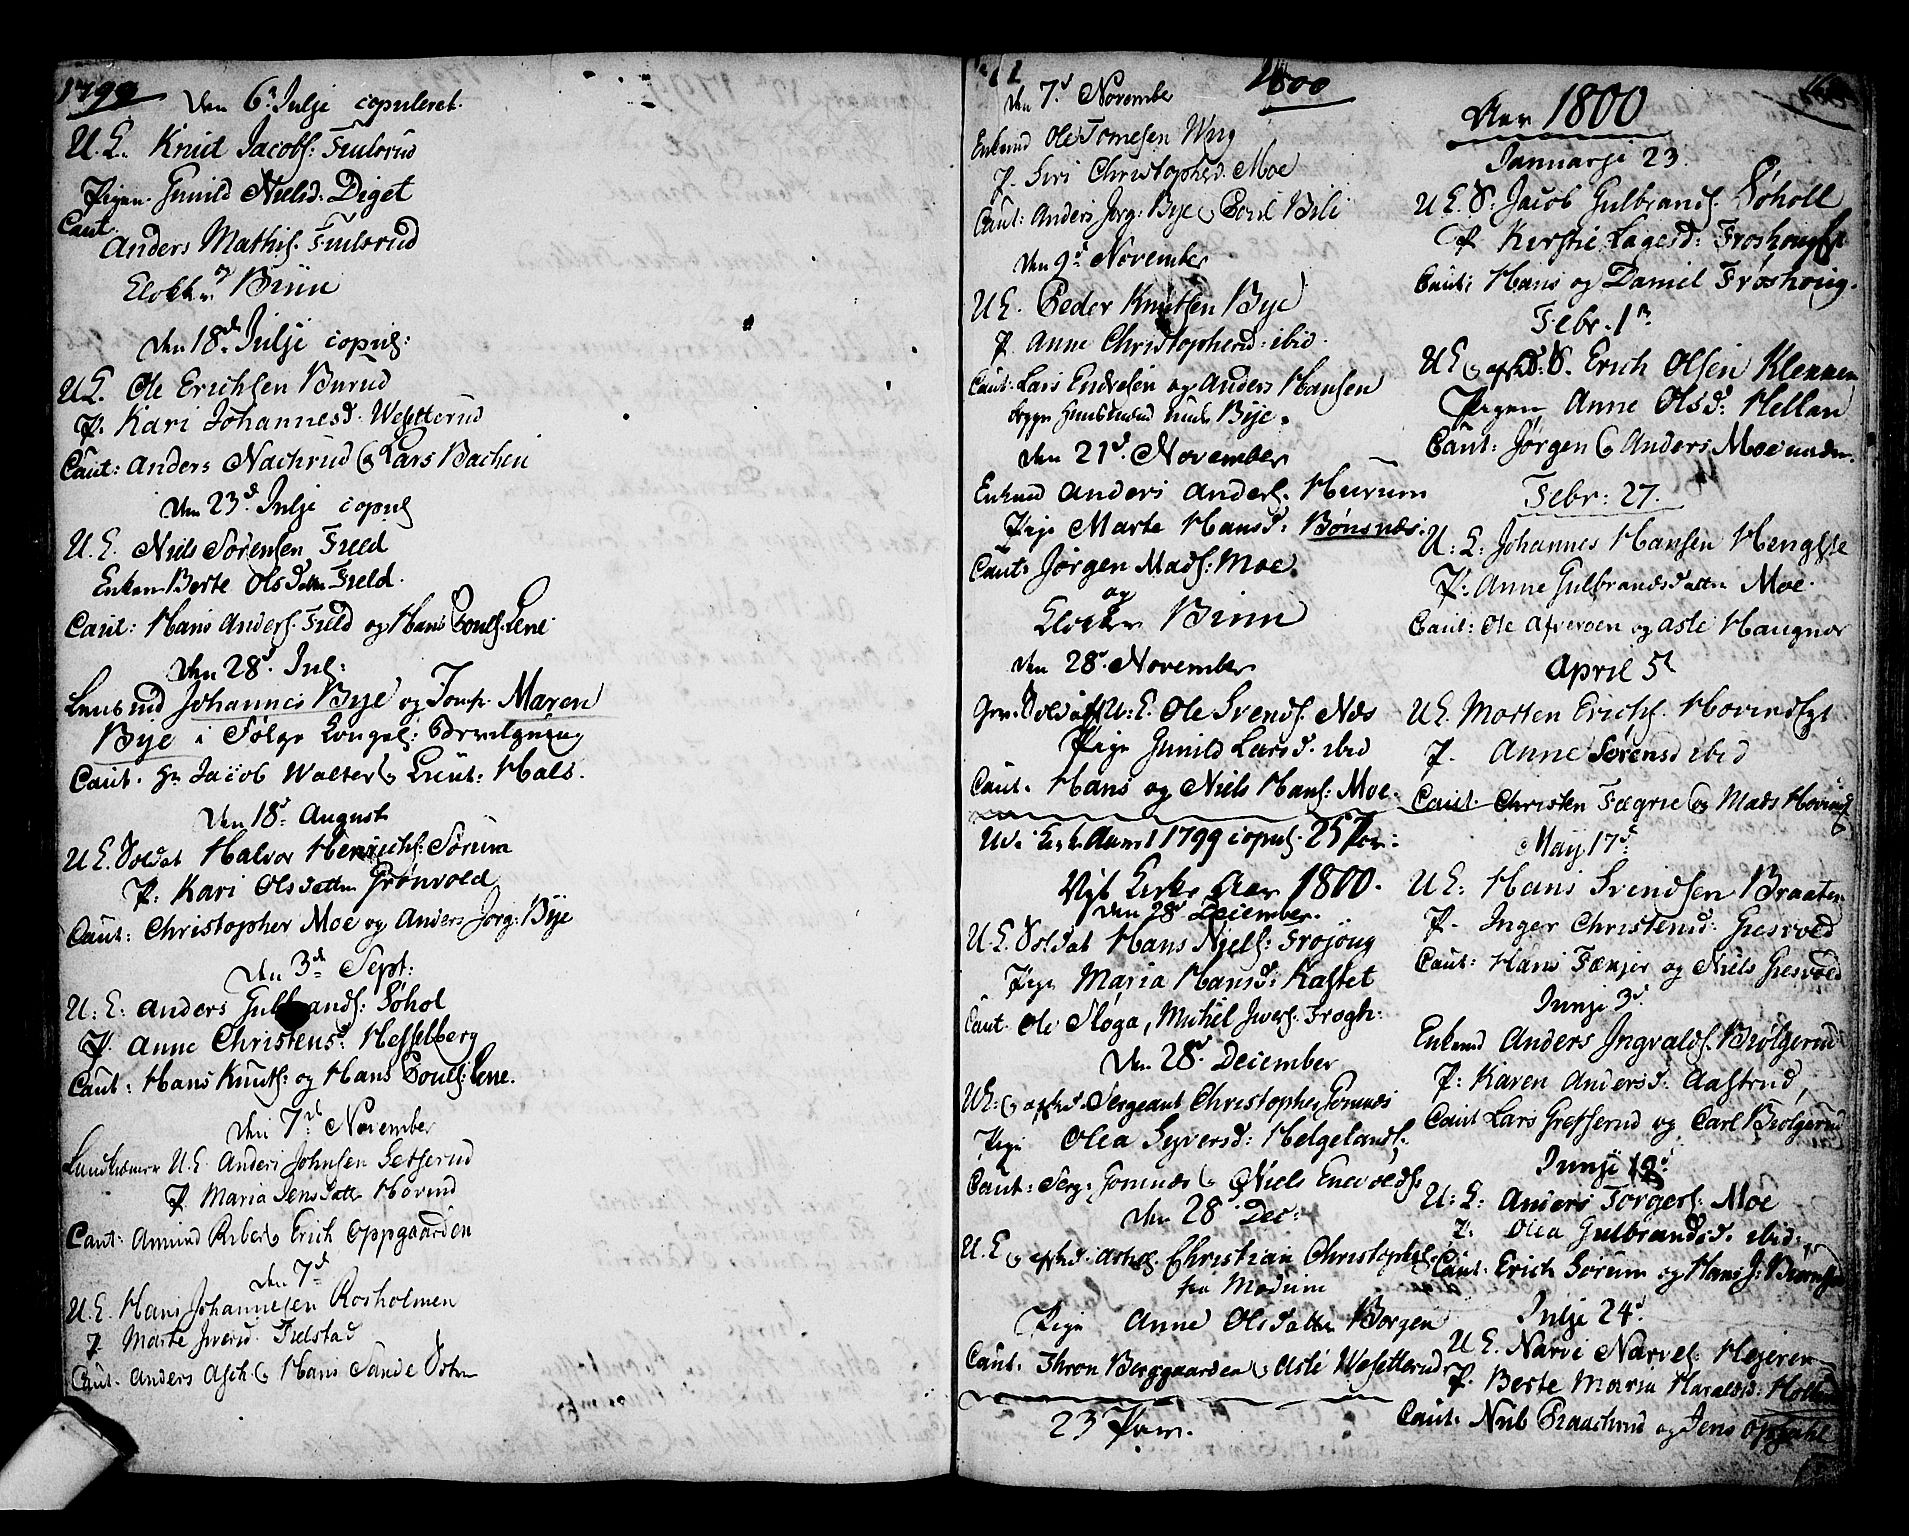 1799
Den 6. Julji copuleret.
U. E. Knud Jacobs: Fulsrud
Pigen. Gunild Nielsd: Diget
Caut. Anders Mathis. Fulsrud
og Klokker Binn
Den 18de Julji copul:
U E. Ole Erichsen Burud
P. Kari Johannesd. Wesetterud
Caut: Anders Nachrud & Lars Bachen
Den 23d Julji copul
U. E. Niels Sørensen Field
Enken Berte Olsdatter Field.
Caut: Hans Anders. Field og Hans Pouls. Lene
Den 28d. Jul:
Johannes Bye og Jomfr. Maren
Bye i Følge Kongel: Bevilgning
Caut. Hr Jacob Walter & Lieut: Hals.
Den 18d August
U E. Soldat Halvor Henrichs: Sørum
P. Kari Olsdatter Grønvold
Caut: Christopher Moe og Anders Jorg: Bye
Den 3d Sept:
U: E: Anders Gulbrands: Søhol
P. Anne Christensd. Hesselberg
Caut: Hans Knuts: og Hans Pouls: Lene.
Den 7d November
U E. Anders Johnsen Setserud
P. Maria Jensdatter Hovind
Caut: Amund & Erich Oppgaarden
Den 7d
U. E. Hans Johannesen Rosholmen
P. Marte Iversd. Fielstad
Caut. Anders Asch & Hans Sande
1800
Den 7d November
Enkemd Ole Tomesen Wiig
P. Siri Christophersd. Moe
Caut: Anders Jorg: Bye & Poul Bili
Den 9d November
U E. Peder Knutsen Bye
P. Anne Christophersd: ibid.
Caut: Lars Endresen og Anders Hansen
begge Huusmænd under Bye.
Den 21d. November
Enkemd Anders Anders. Hurum
Pige Marte Hansd. Bønsnæs.
Caut: Jørgen Mads: Moe.
og
Klokker Binn
Den 28d. November
Soldat U: E. Ole Svends. Næs
Pige Gunild Larsd. ibid
Caut. Hans og Niels Hans: Moe.
Ud. Kirke Aaret 1799 copul. 25 Par:
Nyt Kirke Aar 1800.
Den 28d December.
U. E. Soldat Hans Niels: Frøjoug
Pige Maria Hansd: Kastet
Caut. Ole Sloga, Michel Ivers. Frogh:
Den 28d. December
U E: & afsk. Sergeant Christopher Gomnæs
Pige Olea Syversd: Helgelands.
Caut: Serg: Gomnæs & Niels Enevolds.
Den 28d. Dec:
U. E & afskd. Christian Christophs.
fra Modum
Pige Anne Olsdatter Borgen
Caut. Thron Berggaarden & Asle Wesetterud
23 Par.
Aar 1800
Januarji 23.
U E. S: Jacob Gulbrands. Søholl
P Kirstie Lagesd: Frøshougeje
Caut: Hans og Daniel Frøshoug.
Febr. 1
U E & afskd: S. Erich Olsen Klennen
Pigen Anne Olsd. Hellan
Caut: Jørgen & Anders Moe under.
Febr: 27.
U: E: Johannes Hansen Hengsle
P: Anne Gulbrandsdatter Moe.
Caut: Ole Afveroen og Asle Haugnor
April 5t
U E. Morten Erichs. Hovindejet
P. Anne Sørensd ibid
Caut. Christen Fægrie & Mads Hovind
May 17d
U E: Hans Svendsen Braaten
P. Inger Christensd: Giesvold
Caut: Hans Fæxjer og Niels Giesvold
Junji 3d
Enkemd Anders Ingvalds. Bølgerud
P: Karen Andersd: Aastrud
Caut Lars Gresserud og Carl Bølgerud
Junji 12d
U: E: Anders Torgers: Moe
P. Olea Gulbrandsd. ibid:
Caut: Erich Sørum og Hans J:
Julji 24d
U E. Narve Narves. Hejeren
P. Berte Maria Haraldsd: Holte
Caut: Nub Braachrud og Jens Opsahl